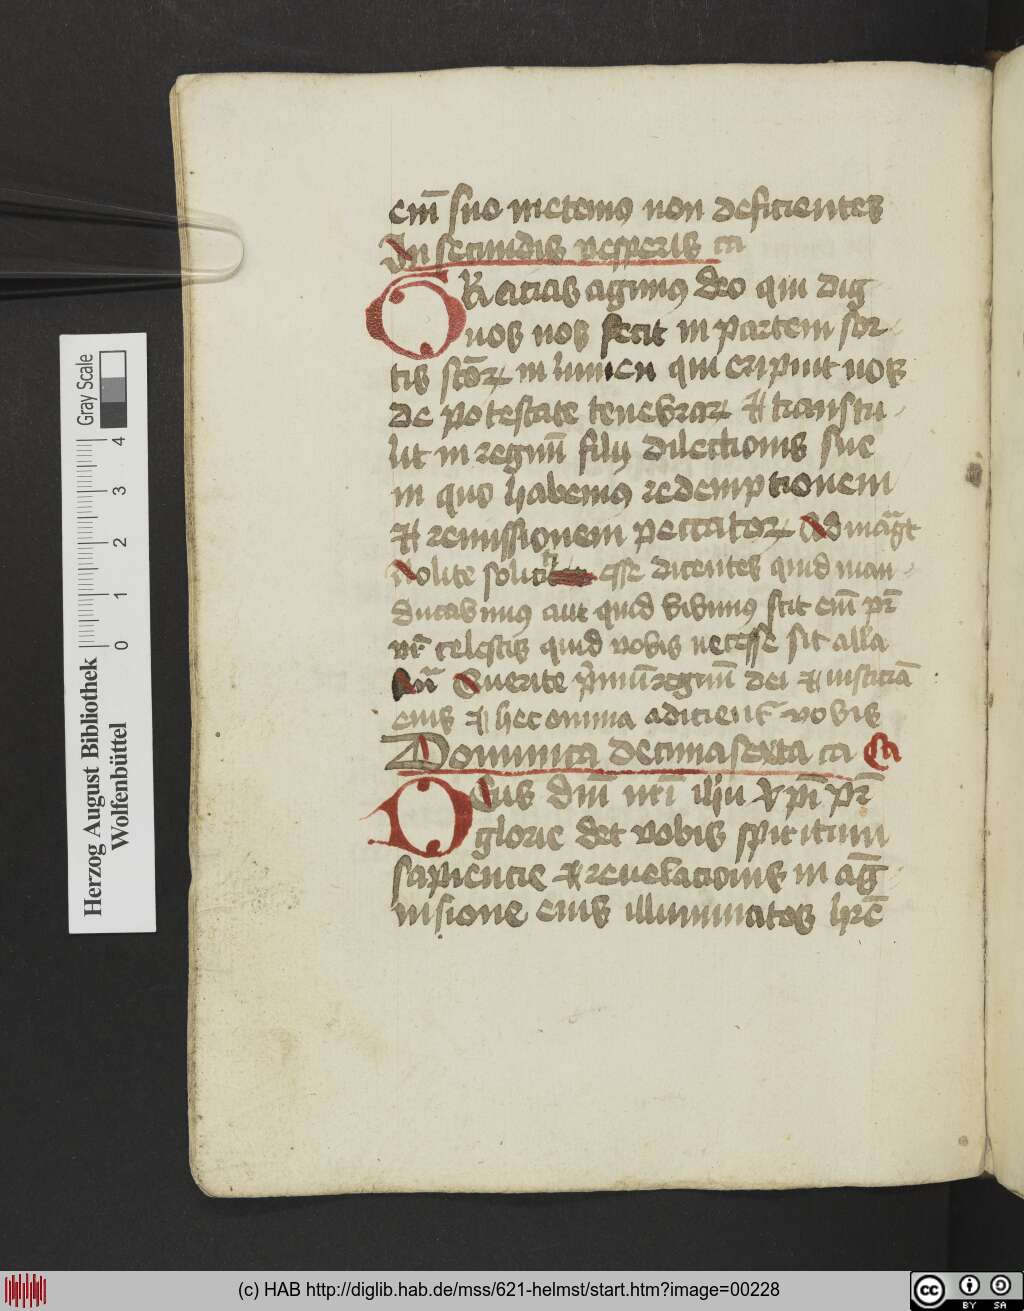 em̄ suo metemꝰ non deficientes
In secundis vesperis ca
GRacias agimꝰ deo qui dig
nos nos fecit in partem sor
tis sc̄oꝝ in lumen qui eripuit nos
de potestate tenebraꝝ et transtu
lit in regnū filij dilectionis sue
in quo habemꝰ redemptionem
et remissionem peccatoꝝ Ad mag̅t
Nolite soliciti esse dicentes quid man
ducabimꝰ aut quid bibimꝰ scit em̄ pr̄
vr̄ celestis quid vobis necesse sit alla
Querite p̄mū regnū dei et iusticiā
eius et hec omnia adicientᷣ vobis
Dominica decimasexta ca Ca
DEus dn̄i nr̄i ihu xp̄i pr̄
glorie det vobis spiritum
sapiencie et reuelacionis in ag̅
nisione eius illuminatos hr̄e
Herzog August Bibliothek
Wolfenbüttel
0 1 2 3 4
Gray Scale
(c) HAB http://diglib.hab.de/mss/621-helmst/start.htm?image=00228
cc BY SA